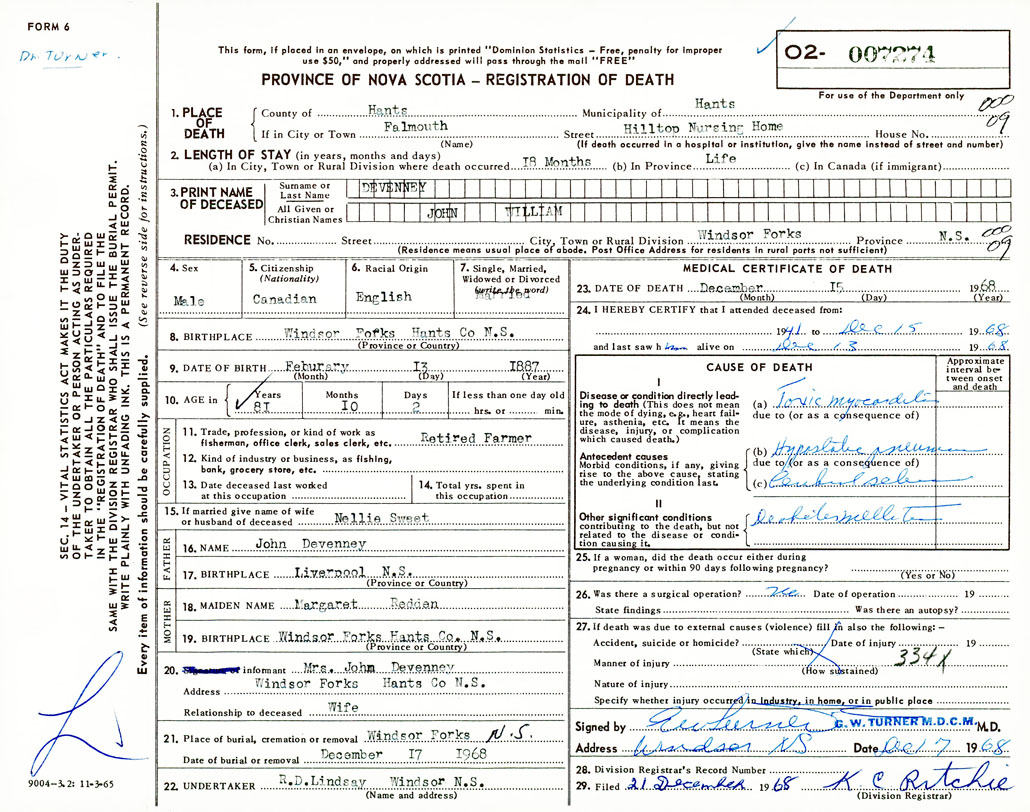 FORM 6
Dr. Turner.
This form, if placed in an envelope, on which is printed "Dominion Statistics – Free, penalty for improper
use $50," and properly addressed will pass through the mail "FREE"
PROVINCE OF NOVA SCOTIA – REGISTRATION OF DEATH
O2- 007274
For use of the Department only
000
09
1. PLACE OF DEATH
County of Hants Municipality of Hants
If in City or Town Falmouth Street Hilltop Nursing Home House No.
(Name) (If death occurred in a hospital or institution, give the name instead of street and number)
2. LENGTH OF STAY (in years, months and days)
(a) In City, Town or Rural Division where death occurred 18 Months (b) In Province Life (c) In Canada (if immigrant)
3. PRINT NAME OF DECEASED
Surname or Last Name DEVENNEY
All Given or Christian Names JOHN WILLIAM
RESIDENCE No. Street City, Town or Rural Division Windsor Forks Province N.S.
(Residence means usual place of abode. Post Office Address for residents in rural parts not sufficient)
000
09
4. Sex
Male
5. Citizenship
(Nationality)
Canadian
6. Racial Origin
English
7. Single, Married,
Widowed or Divorced
(write the word)
Married
8. BIRTHPLACE Windsor Forks Hants Co N.S.
(Province or Country)
9. DATE OF BIRTH Feburary I3 I887
(Month) (Day) (Year)
10. AGE in Years Months Days If less than one day old
8I I0 2 hrs. or min.
OCCUPATION
11. Trade, profession, or kind of work as
fisherman, office clerk, sales clerk, etc. Retired Farmer
12. Kind of industry or business, as fishing,
bank, grocery store, etc.
13. Date deceased last worked
at this occupation
14. Total yrs. spent in
this occupation
15. If married give name of wife
or husband of deceased Nellie Sweet
FATHER
16. NAME John Devenney
17. BIRTHPLACE Liverpool N.S.
(Province or Country)
MOTHER
18. MAIDEN NAME Margaret Redden
19. BIRTHPLACE Windsor Forks Hants Co. N.S.
(Province or Country)
20. informant Mrs. John Devenney
Address Windsor Forks Hants Co N.S.
Relationship to deceased Wife
21. Place of burial, cremation or removal Windsor Forks N.S.
Date of burial or removal December I7 I968
22. UNDERTAKER R.D.Lindsay Windsor N.S.
(Name and address)
MEDICAL CERTIFICATE OF DEATH
23. DATE OF DEATH December I5 1968
(Month) (Day) (Year)
24. I HEREBY CERTIFY that I attended deceased from:
1941 to Dec 15 1968
and last saw him alive on Dec 13 1968
CAUSE OF DEATH
Approximate
interval be-
tween onset
and death
I
Disease or condition directly lead-
ing to death (This does not mean
the mode of dying, e.g., heart fail-
ure, asthenia, etc. It means the
disease, injury, or complication
which caused death.)
(a) Toxic myocarditis
due to (or as a consequence of)
Antecedent causes
Morbid conditions, if any, giving
rise to the above cause, stating
the underlying condition last.
(b) Hypostatic pneumonia
due to (or as a consequence of)
(c)
II
Other significant conditions
contributing to the death, but not
related to the disease or condi-
tion causing it.
25. If a woman, did the death occur either during
pregnancy or within 90 days following pregnancy?
(Yes or No)
26. Was there a surgical operation? no Date of operation 19
State findings Was there an autopsy?
27. If death was due to external causes (violence) fill in also the following: –
Accident, suicide or homicide? Date of injury 19
(State which)
Manner of injury 334X
(How sustained)
Nature of injury
Specify whether injury occurred in industry, in home, or in public place
Signed by G. W. TURNER M.D.C.M. M.D.
Address Windsor NS Date Dec 17 1968
28. Division Registrar's Record Number
29. Filed 21 December 1968 K. C. Ritchie
(Division Registrar)
SEC. 14 – VITAL STATISTICS ACT MAKES IT THE DUTY
OF THE UNDERTAKER OR PERSON ACTING AS UNDER-
TAKER TO OBTAIN ALL THE PARTICULARS REQUIRED
IN THE "REGISTRATION OF DEATH" AND TO FILE THE
SAME WITH THE DIVISION REGISTRAR WHO SHALL ISSUE THE BURIAL PERMIT.
WRITE PLAINLY WITH UNFADING INK. THIS IS A PERMANENT RECORD.
Every item of information should be carefully supplied. (See reverse side for instructions.)
9004–3.2: 11-3-65